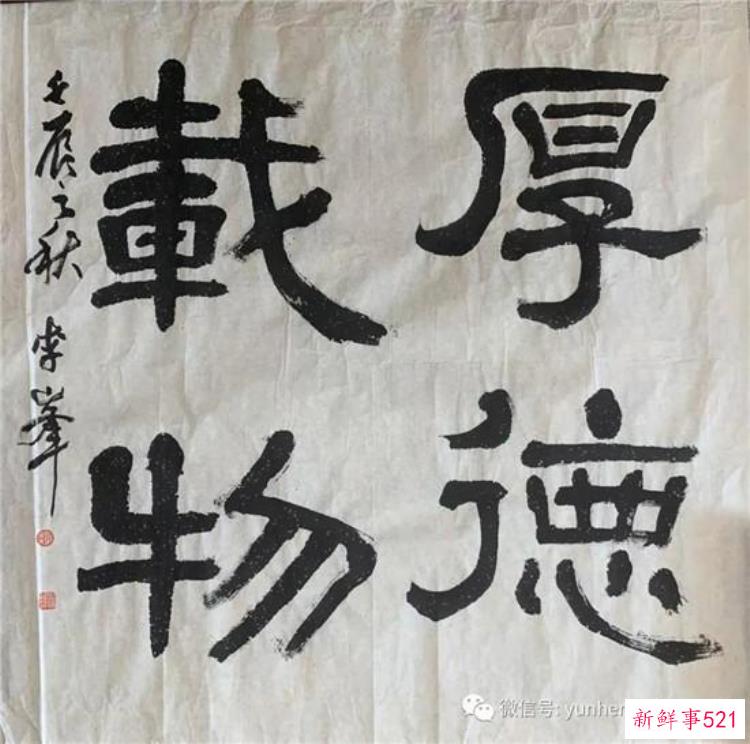 厚德
載物
壬辰之秋 李峯
微信号: yunhe
新鲜事521